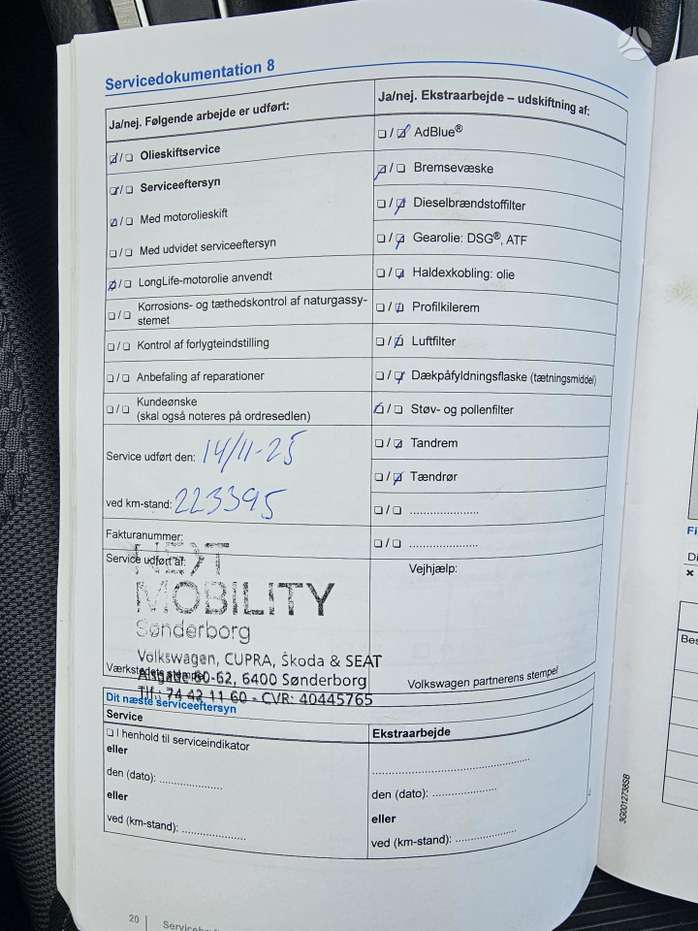 Servicedokumentation 8
Ja/nej. Følgende arbejde er udført:
☑/☐ Olieskiftservice
☑/☐ Serviceeftersyn
☑/☐ Med motorolieskift
☐/☐ Med udvidet serviceeftersyn
☑/☐ LongLife-motorolie anvendt
☐/☐ Korrosions- og tæthedskontrol af naturgassy-
stemet
☐/☐ Kontrol af forlygteindstilling
☐/☐ Anbefaling af reparationer
☐/☐ Kundeønske
(skal også noteres på ordresedlen)
Service udført den: 14/11-25
ved km-stand: 223395
Fakturanummer:
Service udført af:
NEXT
MOBILITY
Sønderborg
Volkswagen, CUPRA, Škoda & SEAT
Alsgade 60-62, 6400 Sønderborg
Tlf.: 74 42 11 60 - CVR: 40445765
Ja/nej. Ekstraarbejde – udskiftning af:
☐/☑ AdBlue®
☑/☐ Bremsevæske
☐/☑ Dieselbrændstoffilter
☐/☑ Gearolie: DSG®, ATF
☐/☑ Haldexkobling: olie
☐/☑ Profilkilerem
☐/☑ Luftfilter
☐/☑ Dækpåfyldningsflaske (tætningsmiddel)
☑/☐ Støv- og pollenfilter
☐/☑ Tandrem
☐/☑ Tændrør
☐/☐ ......................
☐/☐ ......................
Vejhjælp:
Volkswagen partnerens stempel
Dit næste serviceeftersyn
Service
☐ I henhold til serviceindikator
eller
den (dato): ....................
eller
ved (km-stand): ....................
Ekstraarbejde
..................................................
den (dato): ....................
eller
ved (km-stand): ....................
20
3G0012738SB
Fi
Di
Bes